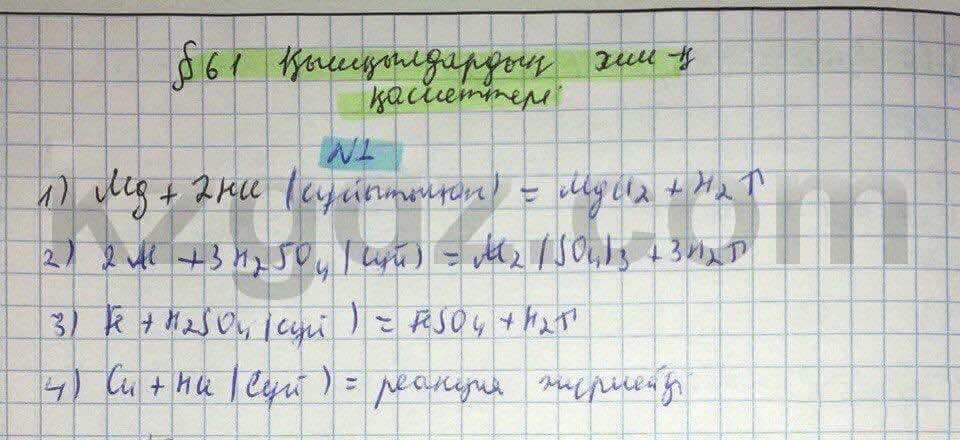 § 61 Қышқылдардың хим-қ
қасиеттері
N1
1) Mg + 2HCl (сұйытылған) = MgCl2 + H2↑
2) 2Al + 3H2SO4 (сұй) = Al2(SO4)3 + 3H2↑
3) Fe + H2SO4 (сұй) = FeSO4 + H2↑
4) Cu + HCl (сұй) = реакция жүрмейді
kzgdz.com